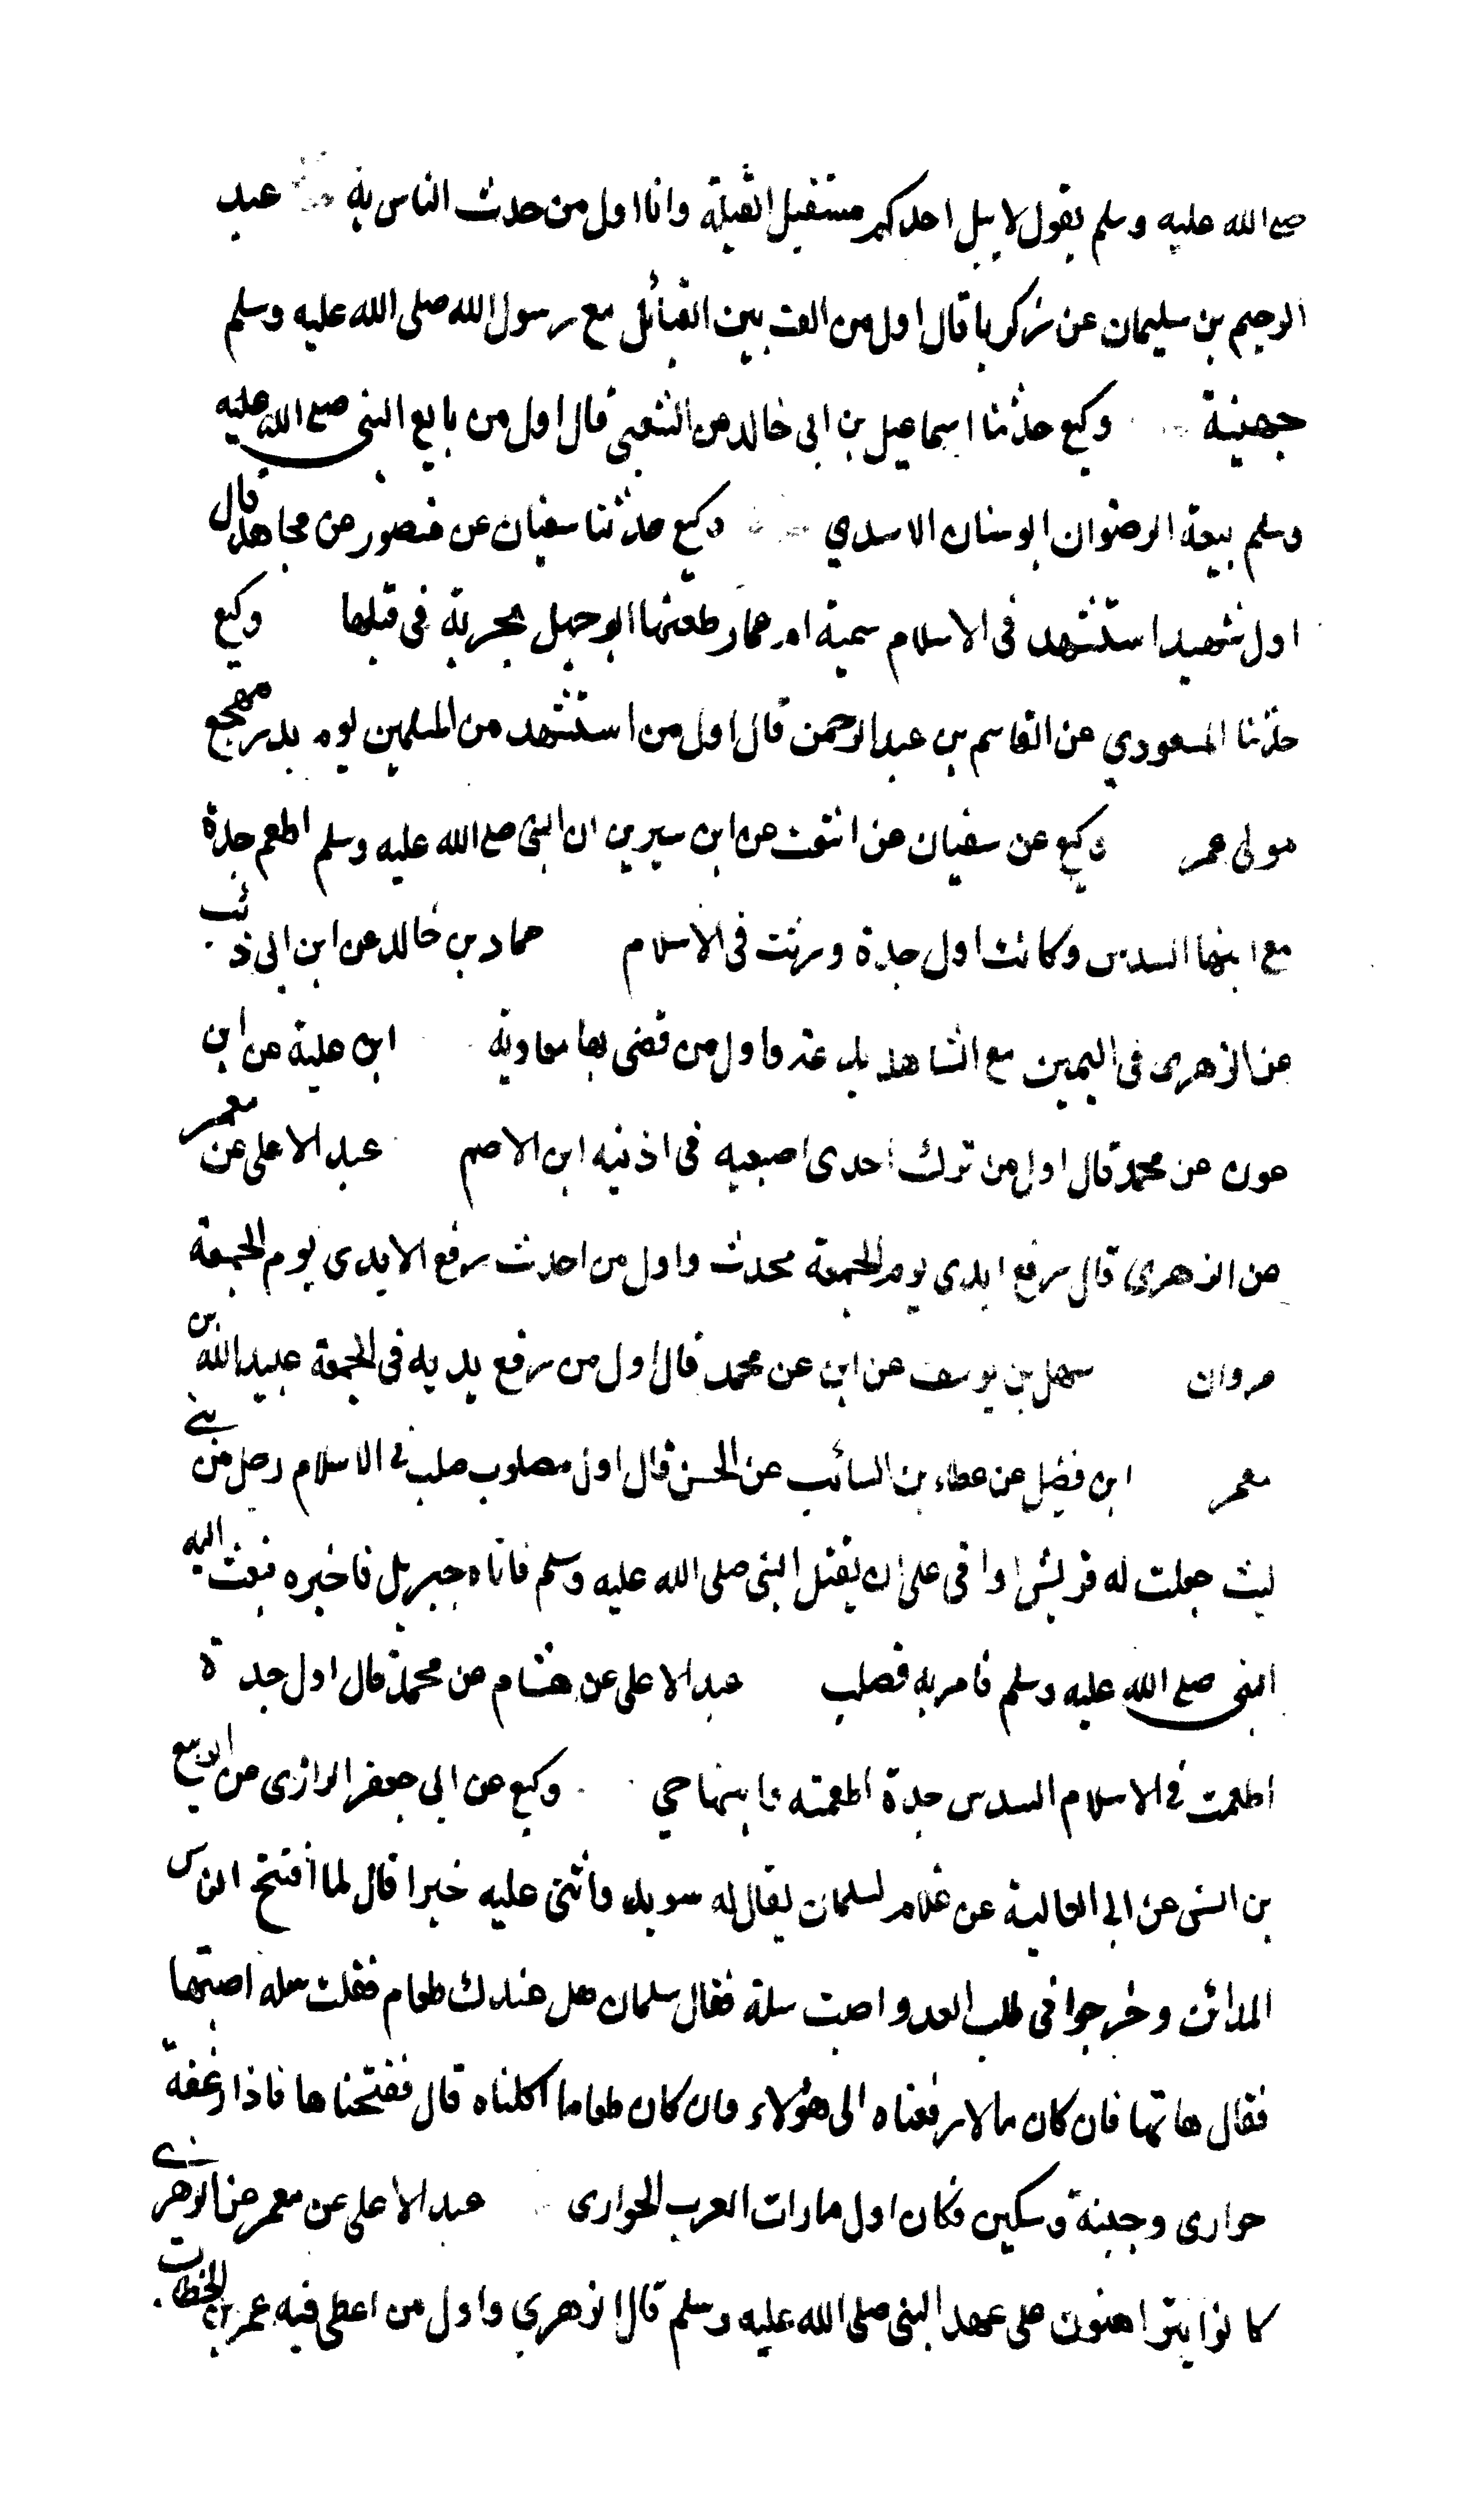 صلع الله عليه وسلم يقول لا يبل احدكم مستقبل القبلة وانا اول من حدث الناس به عبد
الرحيم بن سليمان عن زكريا قال اول من الف بين القبائل مع رسول الله صلى الله عليه وسلم
جهينة وكيع حدثنا اسماعيل بن ابى خالد عن الشعبي قال اول من بايع النبى صلع الله عليه
وسلم بيعة الرضوان ابو سنان الاسدي وكيع حدثنا سفيان عن منصور عن مجاهد قال
اول شهيد استشهد فى الاسلام سمية ام عمار طعنها ابو جهل بحربة فى قبلها وكيع
حدثنا المسعودي عن القاسم بن عبد الرحمن قال اول من استشهد من المسلمين يوم بدر مهجع
مولى عمر وكيع عن سفيان عن اشعث عن ابن سيرين ان النبى صلع الله عليه وسلم اطعم جدة
مع ابنها السدس وكانت اول جدة ورثت فى الاسلام حماد بن خالد عن ابن ابى ذئب
عن الزهرى فى اليمين مع الشاهد بدعة واول من قضى بها معاوية ابن علية عن ابن
عون عن محمد قال اول من ترك احدى اصبعيه فى اذنيه ابن الاصم عبد الاعلى عن معمر
عن الزهرى قال رفع ايدى يوم الجمعة محدث واول من احدث رفع الايدى يوم الجمعة
مروان سهل بن يوسف عن ابن عن محمد قال اول من رفع يديه فى الجمعة عبيد الله بن
معمر ابن فضيل عن عطاء بن السائب عن الحسن قال اول مصلوب صلب فى الاسلام رجل من بنى
ليث جعلت له قريش اواقى على ان يقتل النبى صلى الله عليه وسلم فاتاه جبريل فاخبره فبعث اليه
النبى صلع الله عليه وسلم فامر به فصلب عبد الاعلى عن هشام عن محمد قال اول جدة
اطعمت فى الاسلام السدس جدة اطعمته وابنها حي وكيع عن ابي جعفر الرازى عن الربيع
بن انس عن ابى العالية عن غلام لسلمان يقال له سويد واثنى عليه خيرا قال لما افتتح الناس
المدائن وخرجوا فى طلب العدو اصبت سلة فقال سلمان هل عندك طعام فقلت سلة اصبتها
فقال هاتها فان كان مالا رفعناه الى هؤلاء وان كان طعاما اكلناه قال ففتحناها فاذا ارغفة
حوارى وجبنة وسكين فكان اول ما رات العرب الحوارى عبد الاعلى عن معمر عن الزهرى
كانوا يتراهنون على عهد النبى صلى الله عليه وسلم قال الزهري واول من اعطى فيه عمر بن الخطاب